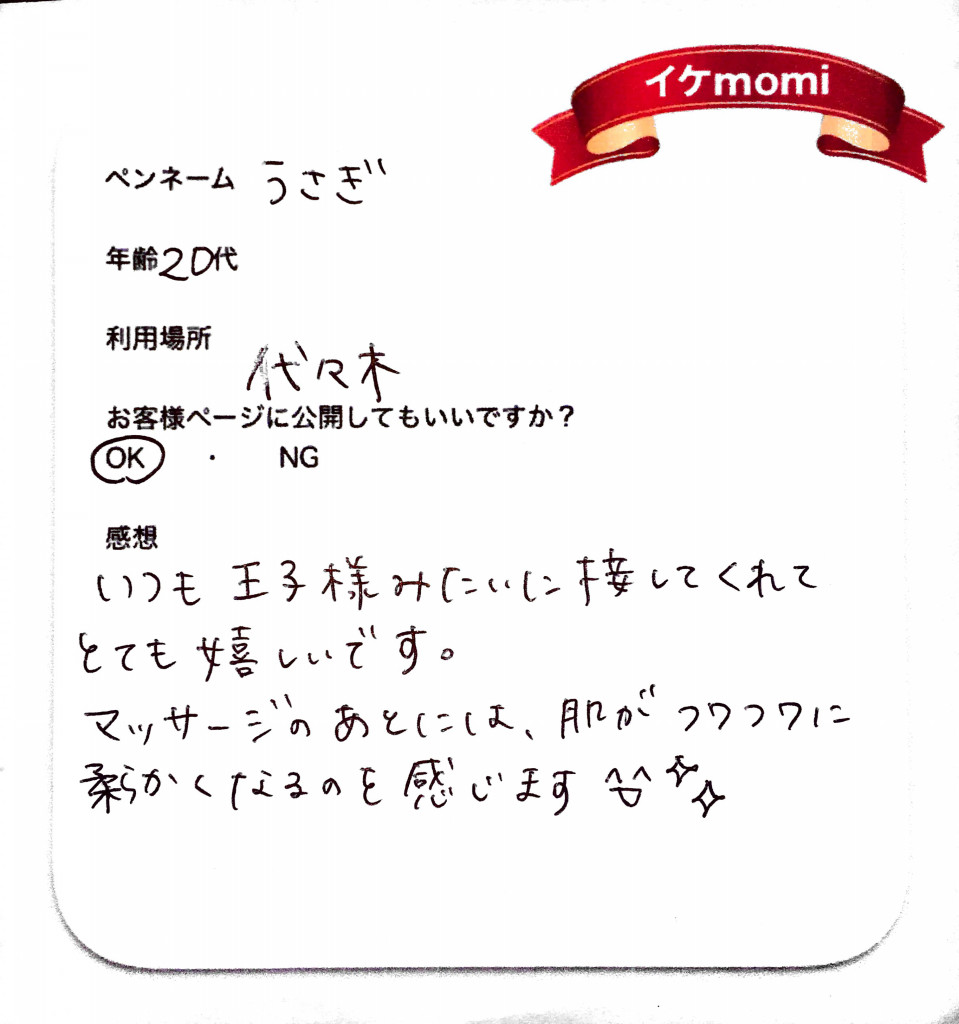 イケmomi
ペンネーム うさぎ
年齢20代
利用場所
代々木
お客様ページに公開してもいいですか？
OK ・ NG
感想
いつも王子様みたいに接してくれて
とても嬉しいです。
マッサージのあとには、肌がフワフワに
柔らかくなるのを感じます